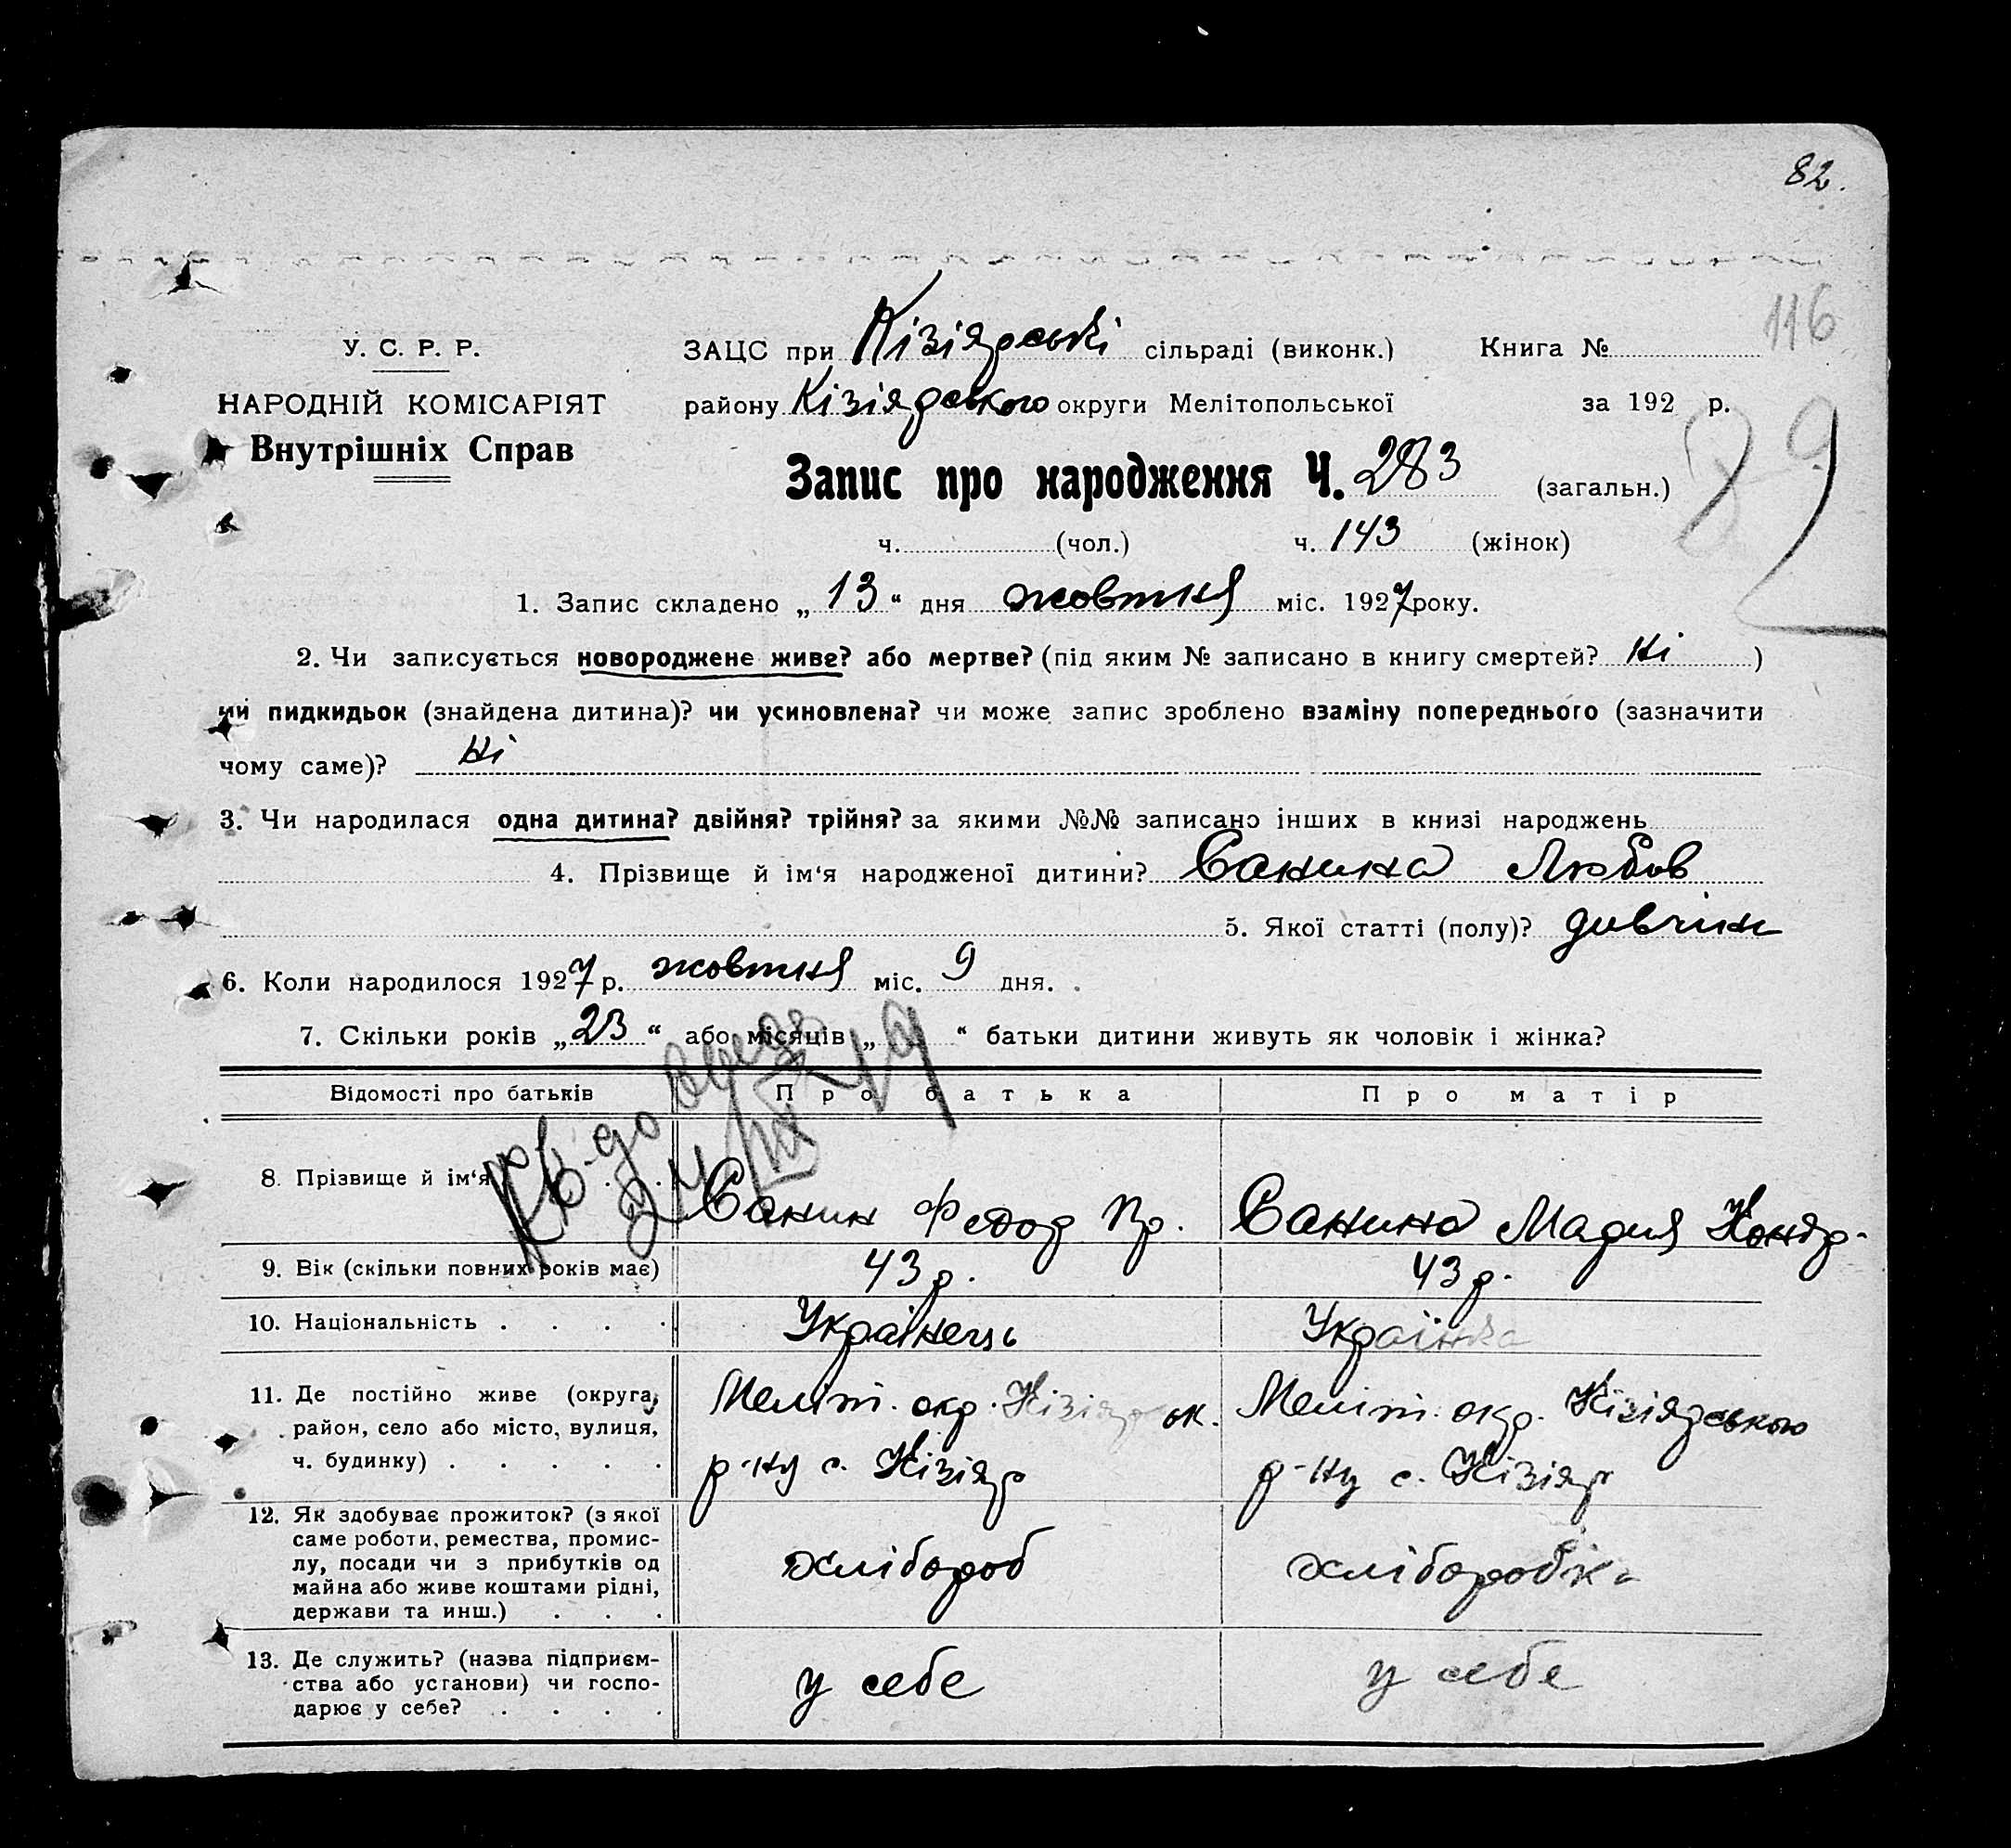 82.
116
У. С. Р. Р.
НАРОДНІЙ КОМІСАРІЯТ
Внутрішніх Справ
ЗАЦС при Кізіярські сільраді (виконк.) Книга №
району Кізіярського округи Мелітопольської за 192 р.
Запис про народження Ч. 283 (загальн.)
ч. (чол.) ч. 143 (жінок)
1. Запис складено „ 13 “ дня жовтня міс. 1927 року.
2. Чи записується новороджене живе? або мертве? (під яким № записано в книгу смертей? Ні )
чи пидкидьок (знайдена дитина)? чи усиновлена? чи може запис зроблено взаміну попереднього (зазначити
чому саме)? Ні
3. Чи народилася одна дитина? двійня? трійня? за якими №№ записано інших в книзі народжень
4. Прізвище й ім‘я народженої дитини? Санина Любов
5. Якої статті (полу)? дивчин
6. Коли народилося 1927 р. жовтня міс. 9 дня.
7. Скільки років „ 23 “ або місяців „ “ батьки дитини живуть як чоловік і жінка?
Відомості про батьків Про батька Про матір
8. Прізвище й ім‘я Санин Федор Пр. Санина Мария Кондр.
9. Вік (скільки повних років має) 43 р. 43 р.
10. Національність . . . . Українець Українка
11. Де постійно живе (округа, Меліт. окр. Кізіярськ. Меліт. окр. Кізіярського
район, село або місто, вулиця,
ч. будинку) . . . . . р-ну с. Кізіяр р-ну с. Кізіяр
12. Як здобуває прожиток? (з якої
саме роботи, ремества, промис-
лу, посади чи з прибутків од хлібороб хлібаробка
майна або живе коштами рідні,
держави та инш.) . . .
13. Де служить? (назва підприєм-
ства або установи) чи госпо- у себе у себе
дарює у себе? . . . .